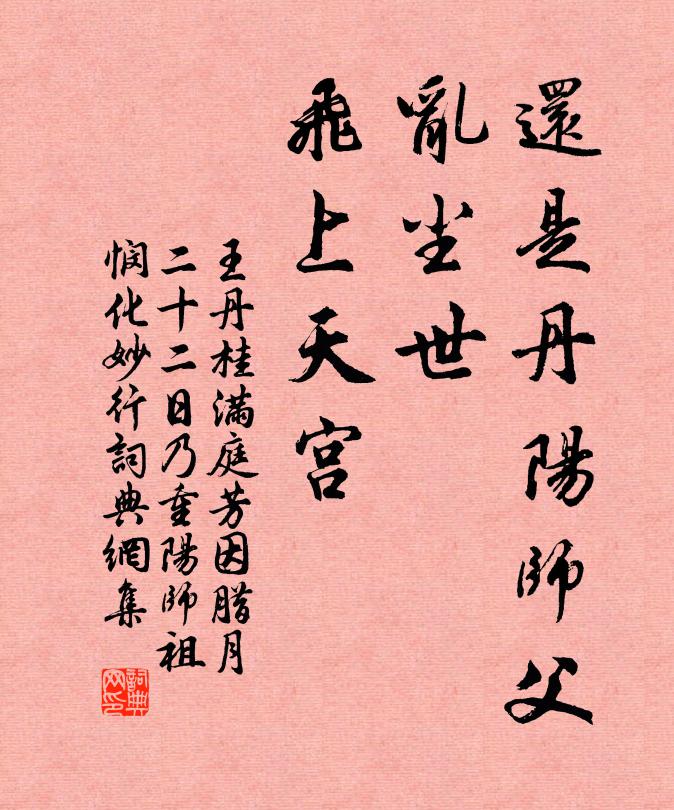 還是丹陽師父
亂尘世
飛上天宮
王丹桂滿庭芳因腊月
二十二日乃重陽師祖
悯化妙行詞典網集
詞典
网印